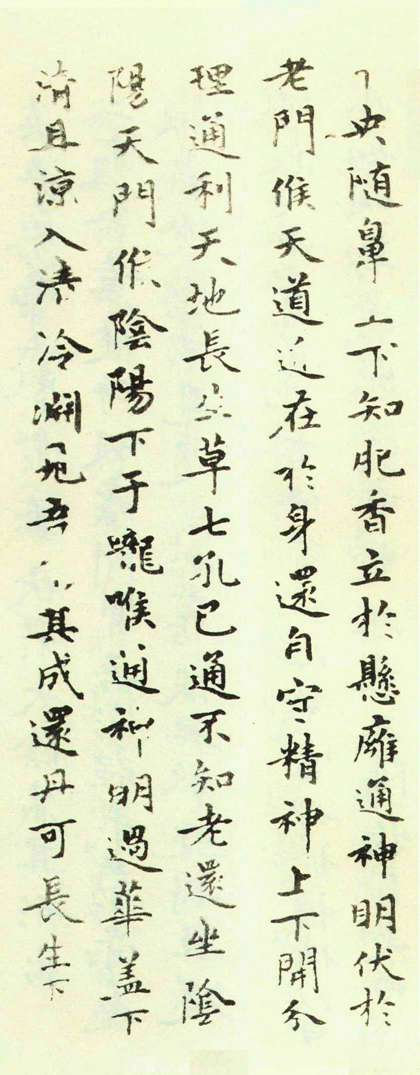 央随鼻上下知肥香立於懸癰通神明伏於
老門候天道近在於身還自守精神上下開分
理通利天地長生草七孔已通不知老還坐陰
陽天門候陰陽下于嚨喉通神明過華蓋下
清且涼入清冷淵見吾其成還丹可長生下